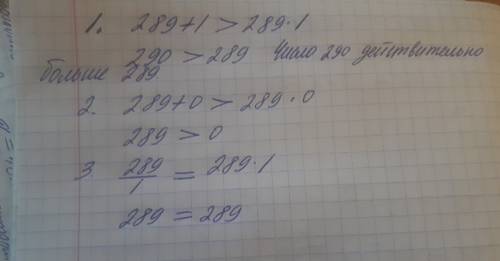 1. 289+1 > 289·1
290 > 289 Число 290 действительно
больше 289
2. 289+0 > 289·0
289 > 0
3 289/1 = 289·1
289 = 289